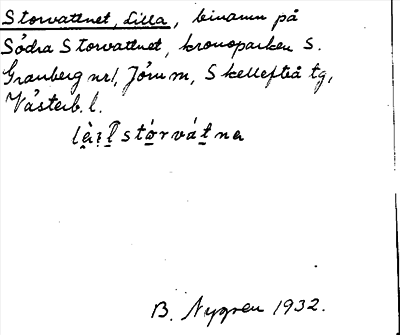 Storvattnet, Lilla, binamn på
Södra Storvattnet, kronoparken S.
Granberg nr1, Jörn m, Skellefteå tg,
Västerb. l.
stórvátna
B. Nygren 1932.